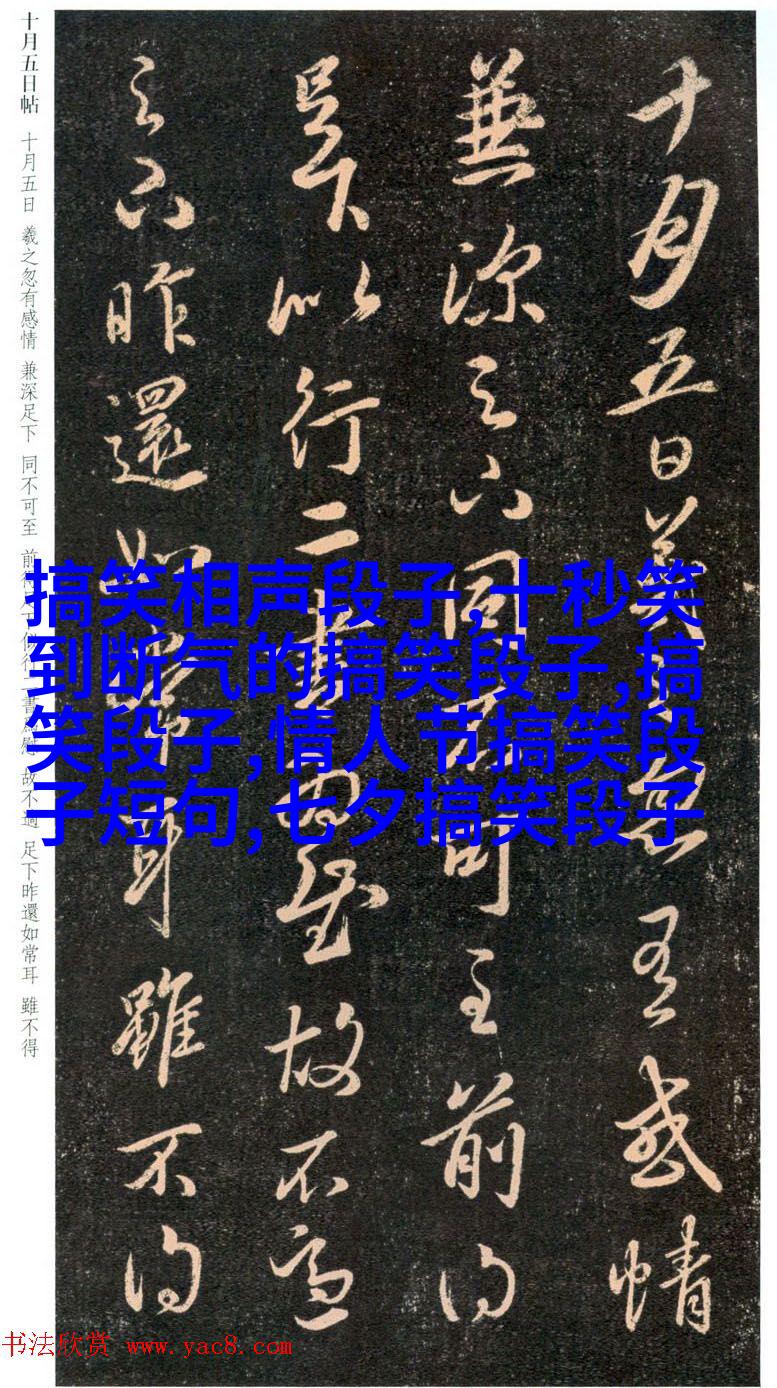 十月五日帖 十月五日 羲之忽有感情 兼深足下 同不可至 前 行 書為慰 故不 足下昨還如常耳 雖不得
十月五日羲 忽有感情
兼深足下同不可至前得
足下以行二書為慰故不
足下昨還如常耳雖不得
搞笑相声段子,十秒笑
到断气的搞笑段子,搞
笑段子,情人节搞笑段
子短句,七夕搞笑段子
书法欣赏 www.yac8.com